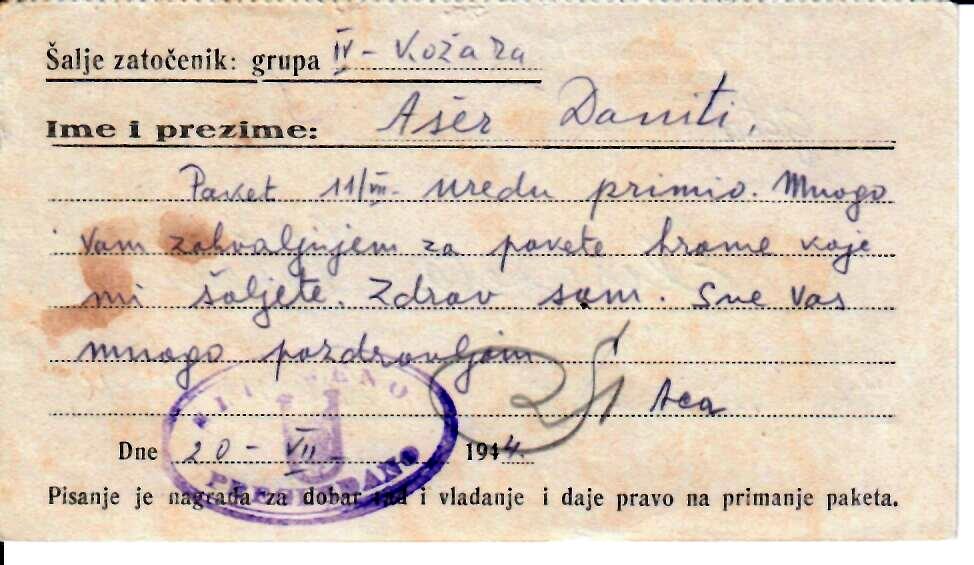 Šalje zatočenik: grupa IV - Kožara
Ime i prezime: Ašer Daniti,
Paket 11/VII. uredu primio. Mnogo
Vam zahvaljujem za pakete hrane koje
mi šaljete. Zdrav sam. Sve vas
mnogo pozdravljam
Aca
Dne 20 - VII 1944.
Pisanje je nagrada za dobar rad i vladanje i daje pravo na primanje paketa.